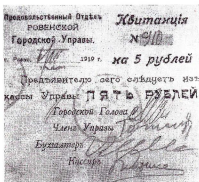 Продовольственный Отдѣлъ Квитанція
РОВЕНСКОЙ
Городской Управы. №
г. Ровно. 1919 г. на 5 рублей
Предъявителю сего слѣдуетъ изъ
кассы Управы ПЯТЬ РУБЛЕЙ
Городской Голова
Члень Управы
Бухгалтеръ
Кассиръ